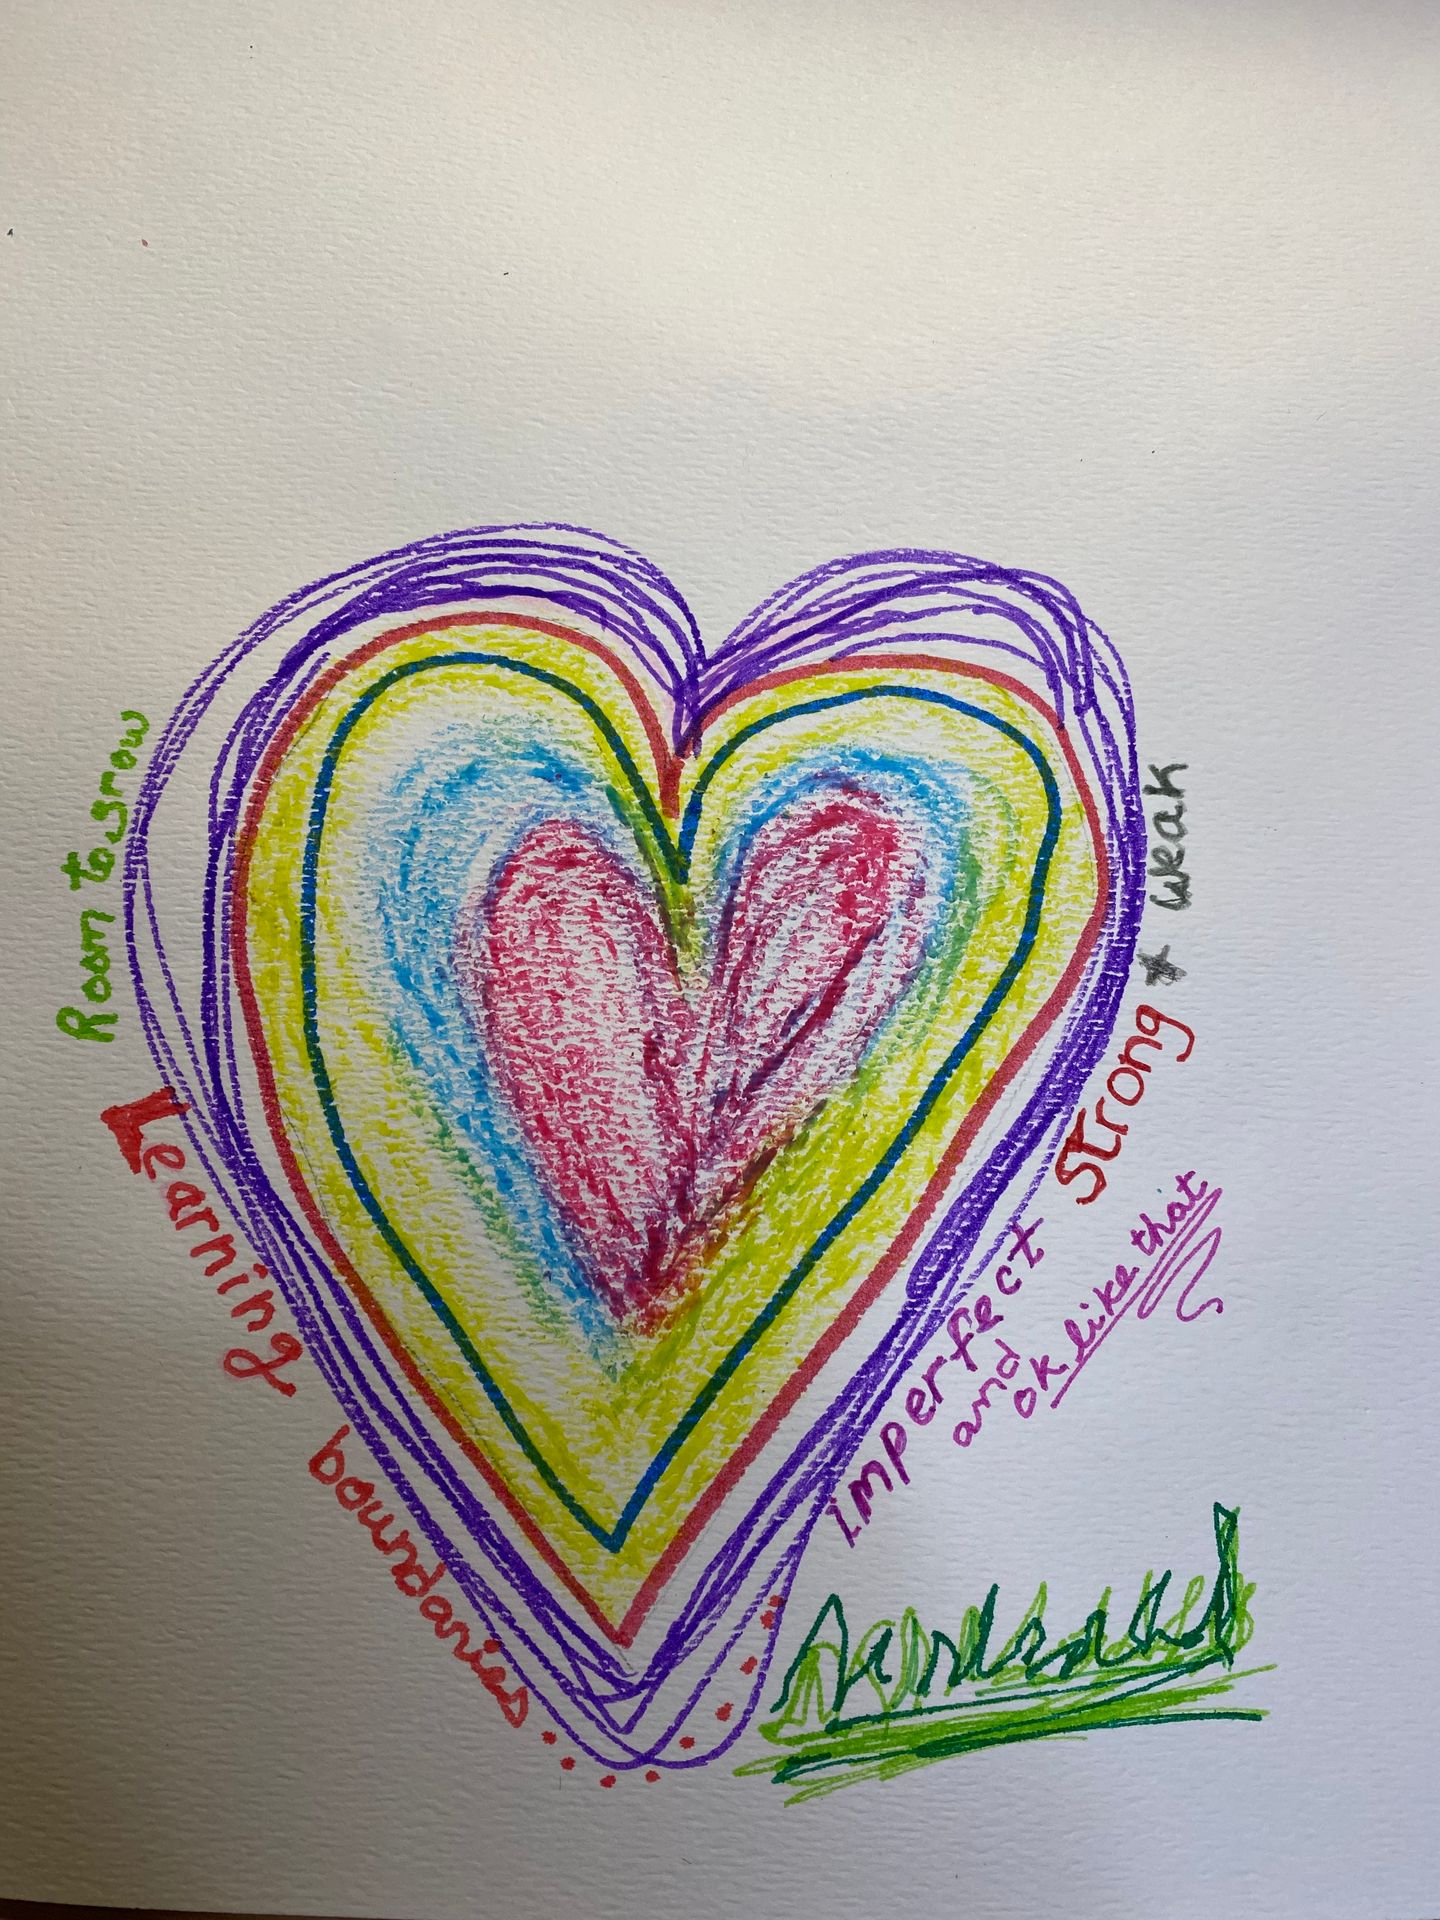 Room to grow
Learning boundaries
Strong & weak
imperfect
and
ok like that